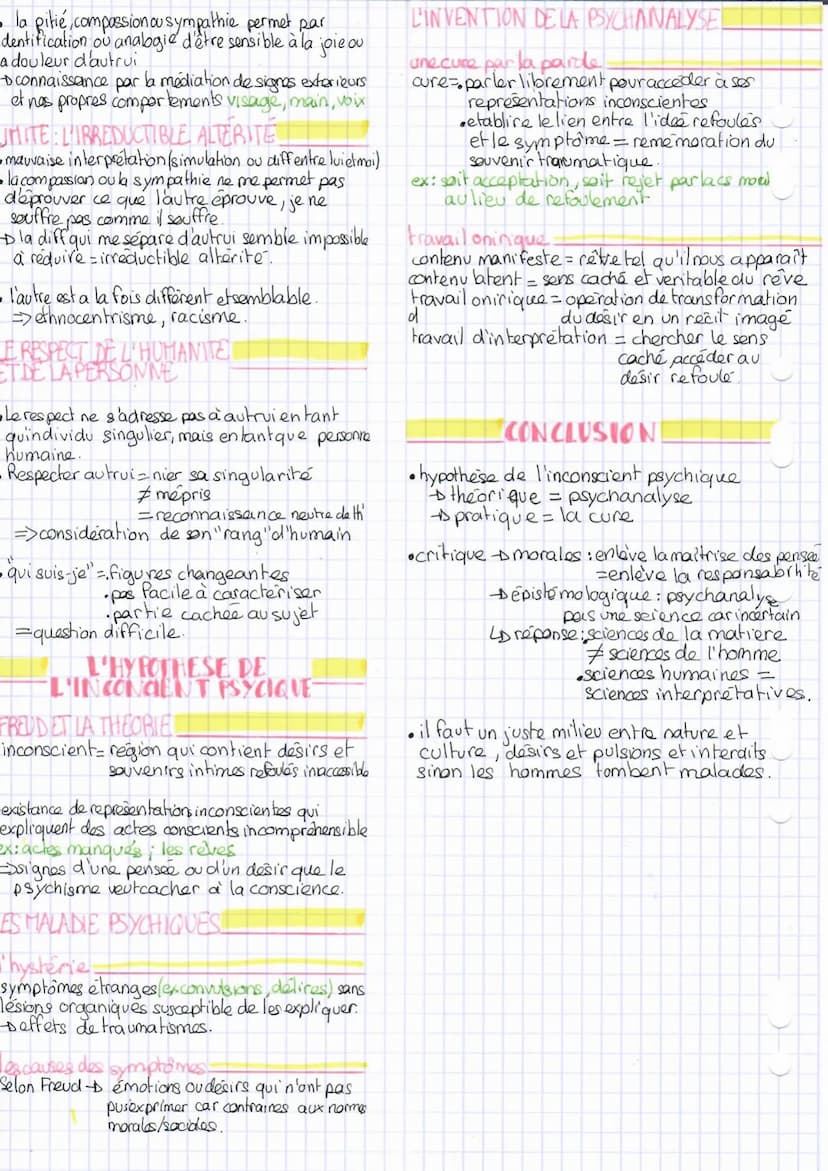 • la pitié, compassion ou sympathie permet par
dentification ou analogie d'être sensible à la joie ou
a douleur d'autrui
→ connaissance par la médiation de signes exterieurs
et nos propres comportements visage, main, voix
IMITE : L'IRREDUCTIBLE ALTÉRITÉ
• mauvaise interprétation (simulation ou diff entre lui et moi)
• la compassion ou la sympathie ne me permet pas
d'éprouver ce que l'autre éprouve, je ne
souffre pas comme il souffre.
→ la diff qui me sépare d'autrui semble impossible
à réduire = irréductible altérité.
• l'autre est a la fois différent et semblable.
=> ethnocentrisme, racisme.
LE RESPECT DE L'HUMANITÉ
ET DE LA PERSONNE
• Le respect ne s'adresse pas à autrui en tant
qu'individu singulier, mais en tant que personne
humaine.
• Respecter autrui = nier sa singularité
≠ mépris
= reconnaissance neutre de l'h'
=> considération de son "rang" d'humain
• "qui suis-je" = • figures changeantes
• pas facile à caractériser
• partie cachée au sujet
= question difficile.
L'HYPOTHESE DE
L'INCONCIENT PSYCIQUE
FREUD ET LA THÉORIE
inconscient = région qui contient désirs et
souvenirs intimes refoulés inaccessible
existance de représentations inconscientes qui
expliquent des actes conscients incompréhensible
ex: actes manqués ; les rêves
=> signes d'une pensée ou d'un désir que le
psychisme veut cacher à la conscience.
LES MALADIE PSYCHIQUES
l'hystérie
symptômes étranges (ex convulsions, délires) sans
lésions organiques susceptible de les expliquer.
→ effets de traumatismes.
Les causes des symptômes
Selon Freud → émotions ou désirs qui n'ont pas
pu s'exprimer car contraires aux normes
morales/sociales.
L'INVENTION DE LA PSYCHANALYSE
une cure par la parole
cure = • parler librement pour accéder à ses
représentations inconscientes
• etablire le lien entre l'idée refoulés
et le symptôme = remémoration du
souvenir traumatique.
ex: soit acceptation, soit rejet par la cs moral
au lieu de refoulement
travail onirique
contenu manifeste = rêve tel qu'il nous apparaît
contenu latent = sens caché et veritable du rêve
travail onirique = opération de transformation
d du désir en un récit imagé
travail d'interprétation = chercher le sens
caché, accéder au
désir refoulé
CONCLUSION
• hypothèse de l'inconscient psychique
→ théorique = psychanalyse
→ pratique = la cure
• critique → morales : enlève la maitrise des pensée
= enlève la responsabilité
→ épistémologique : psychanalyse
pas une science car incertain
↳ réponse : sciences de la matière
≠ sciences de l'homme
• sciences humaines =
sciences interprétatives.
• il faut un juste milieu entre nature et
culture, désirs et pulsions et interdits
sinon les hommes tombent malades.